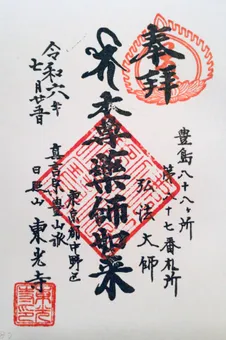 奉拝
豊島八十八ヶ所
第八十七番札所
弘法大師
本尊薬師如来
東京都中野区
真言宗豊山派
東光寺
令和六年
七月